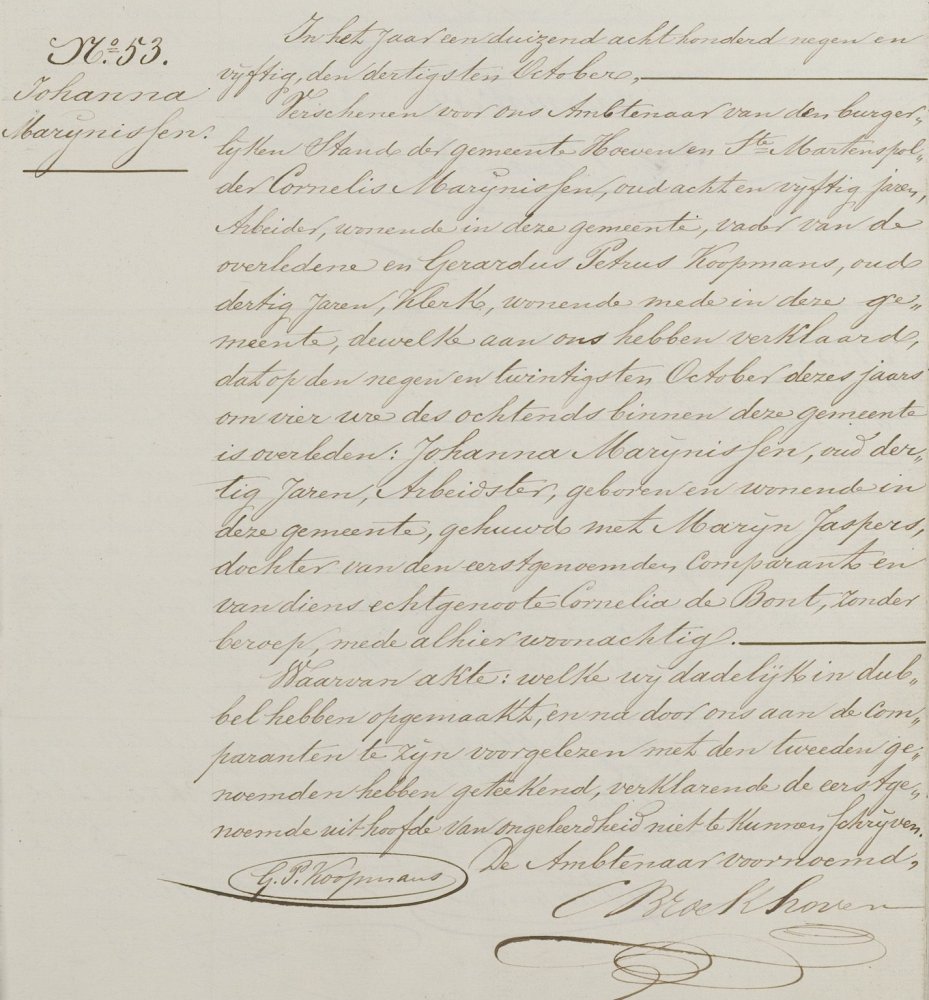 No. 53.
Johanna
Marijnissen.
In het jaar een duizend acht honderd negen en
vijftig, den dertigsten October,
Verschenen voor ons Ambtenaar van den burger„
lijken Stand der gemeente Hoeven en Ste Martenspol„
der Cornelis Marijnissen, oud acht en vijftig jaren,
Arbeider, wonende in deze gemeente, vader van de
overledene en Gerardus Petrus Koopmans, oud
dertig Jaren, Klerk, wonende mede in deze ge„
meente, dewelke aan ons hebben verklaard,
dat op den negen en twintigsten October dezes jaars
om vier ure des ochtends binnen deze gemeente
is overleden: Johanna Marijnissen, oud der„
tig Jaren, Arbeidster, geboren en wonende in
deze gemeente, gehuwd met Marijn Jaspers,
dochter van den eerstgenoemden Comparant en
van diens echtgenoote Cornelia de Bont, zonder
beroep, mede alhier woonachtig.
Waarvan akte: welke wij dadelijk in dub„
bel hebben opgemaakt, en na door ons aan de com„
paranten te zijn voorgelezen met den tweeden ge„
noemden hebben geteekend, verklarende de eerstge„
noemde uit hoofde van ongeleerdheid niet te kunnen Schrijven.
De Ambtenaar voornoemd,
G. P. Koopmans
C Broekhoven